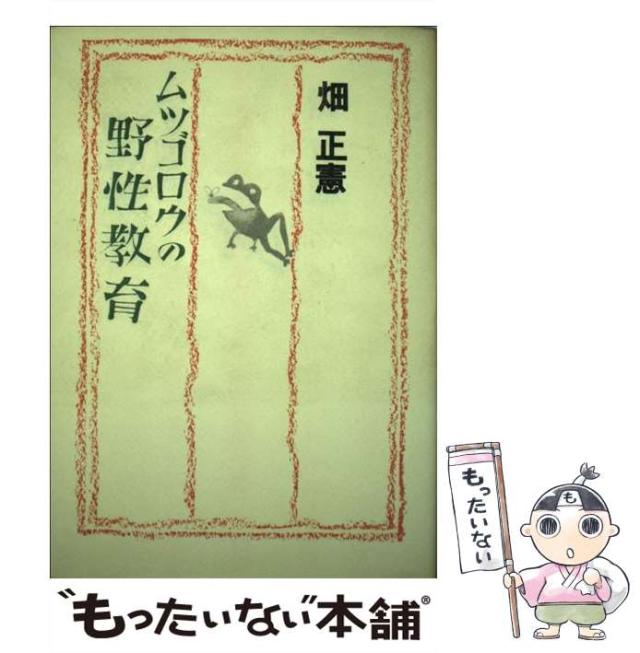 畑 正憲
ムツゴロウの
野性教育
も
もったいない
“もったいない”本舗®